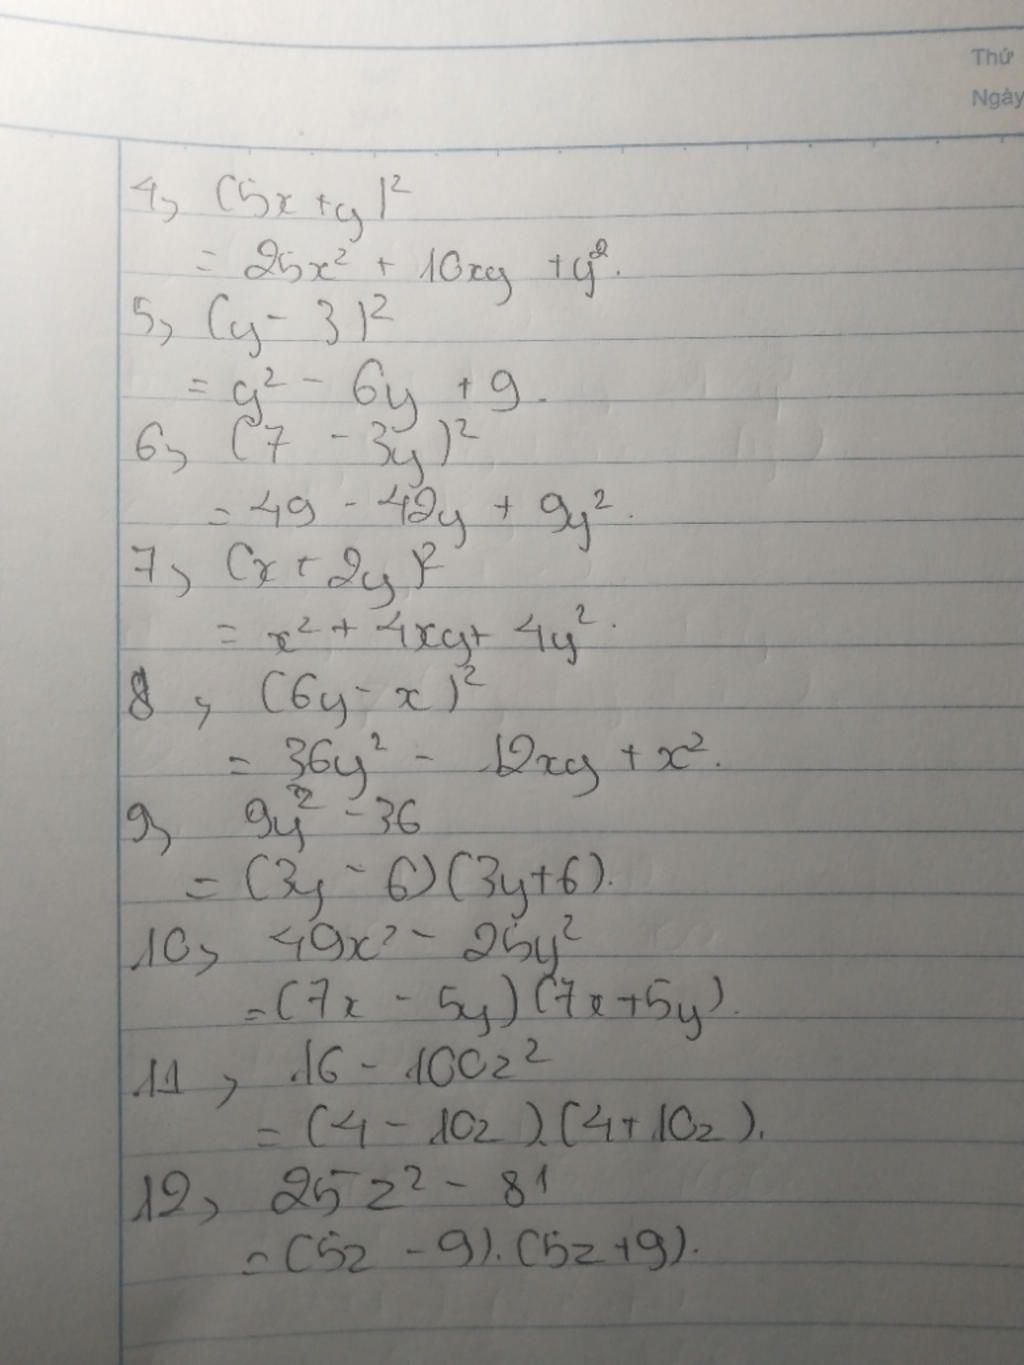 Thứ
Ngày
4, (5x + y)²
= 25x² + 10xy + y².
5, (y - 3)²
= y² - 6y + 9.
6, (7 - 3y)²
= 49 - 42y + 9y².
7, (x + 2y)²
= x² + 4xy + 4y².
8, (6y - x)²
= 36y² - 12xy + x².
9, 9y² - 36
= (3y - 6)(3y + 6).
10, 49x² - 25y²
= (7x - 5y)(7x + 5y).
11, 16 - 100z²
= (4 - 10z).(4 + 10z).
12, 25z² - 81
= (5z - 9).(5z + 9).